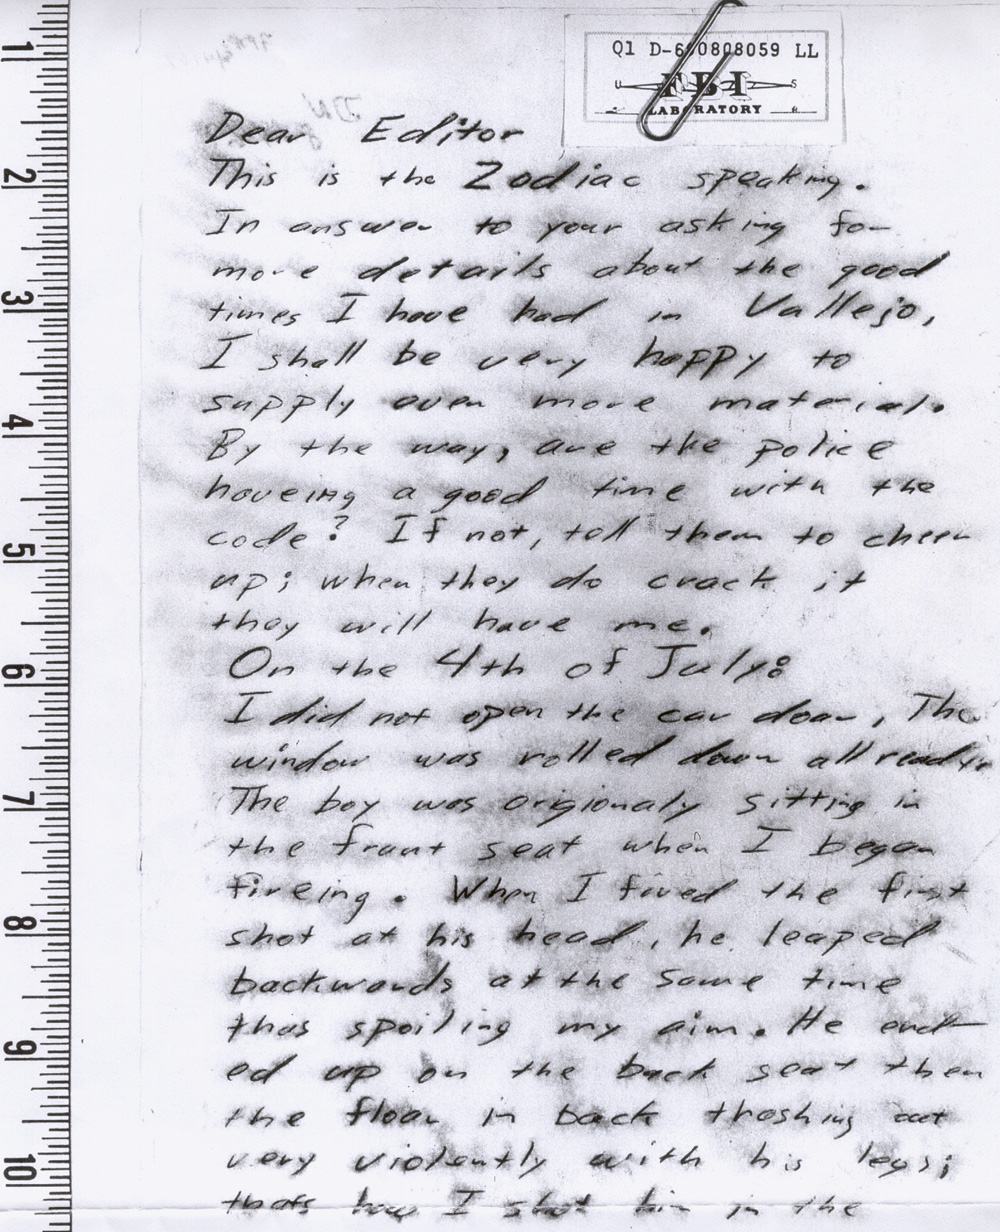 Q1 D-690808059 LL
U S
FBI
LABORATORY
Dear Editor
This is the Zodiac speaking.
In answer to your asking for
more details about the good
times I have had in Vallejo,
I shall be very happy to
supply even more material.
By the way, are the police
haveing a good time with the
code? If not, tell them to cheer
up; when they do crack it
they will have me.
On the 4th of July:
I did not open the car door, The
window was rolled down all ready.
The boy was origionaly sitting in
the frunt seat when I began
fireing. When I fired the first
shot at his head, he leaped
backwards at the same time
thus spoiling my aim. He end-
ed up on the back seat then
the floor in back thashing out
very violently with his legs;
thats how I shot him in the
1
2
3
4
5
6
7
8
9
10